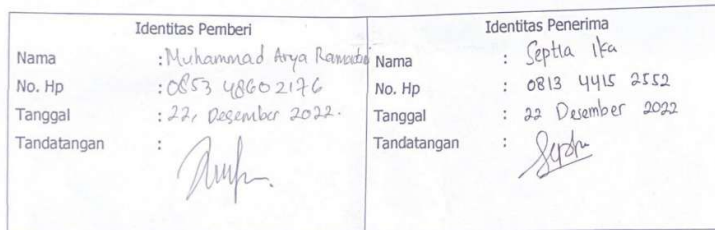 Identitas Pemberi
Nama : Muhammad Arya
No. Hp : 0853 48602176
Tanggal : 22, Desember 2022.
Tandatangan :
Identitas Penerima
Nama : Septia Ika
No. Hp : 0813 4415 2552
Tanggal : 22 Desember 2022
Tandatangan :